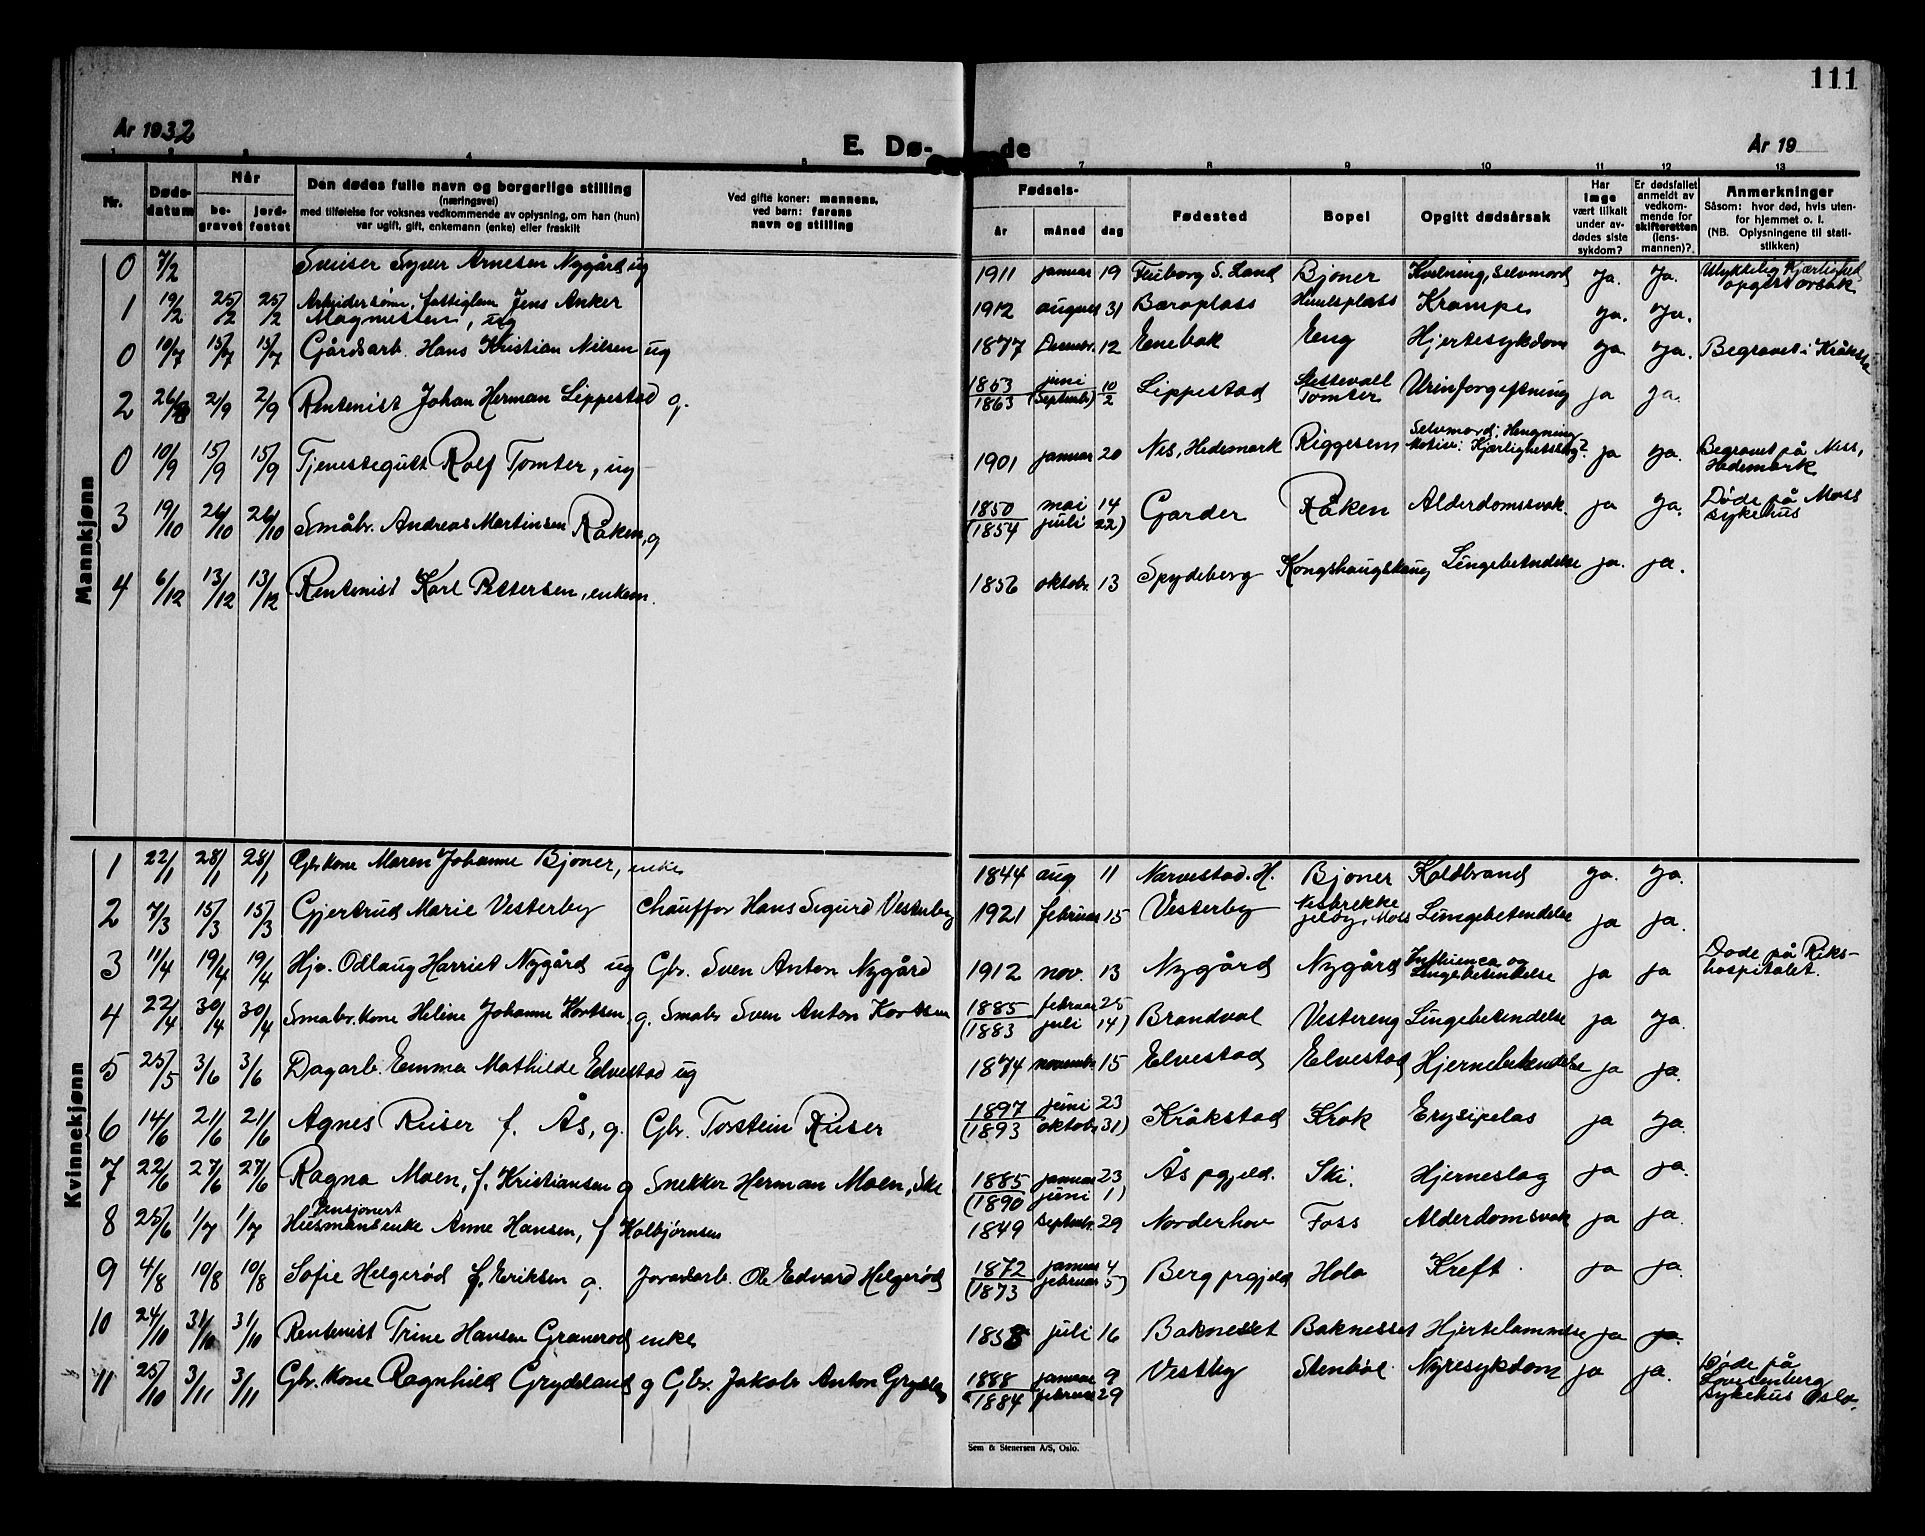 111
År 1932
E. Dø-
de
År 19
1 2 3 4 5 7 8 9 10 11 12 13
Nr.
Døds-
datum
Når
be-
gravet
jord-
festet
Den dødes fulle navn og borgerlige stilling
(næringsvei)
med tilføielse for voksnes vedkommende av oplysning, om han (hun)
var ugift, gift, enkemann (enke) eller fraskilt
Ved gifte koner: mannens,
ved barn: farens
navn og stilling
Fødsels-
år måned dag
Fødested
Bopel
Opgitt dødsårsak
Har
læge
vært tilkalt
under av-
dødes siste
sykdom?
Er dødsfallet
anmeldt av
vedkom-
mende for
skifteretten
(lens-
mannen)?
Anmerkninger
Såsom: hvor død, hvis uten-
for hjemmet o. l.
(NB. Oplysningene til stati-
stikken)
Mannkjønn
0 7/2 Sveiser Syver Arnesen Nygård ug 1911 januar 19 S. Land Bjoner Kvelning, selvmord ja. ja. Ulykkelig kjærlighed
opgit årsak
1 19/2 25/2 25/2 Arbeidersønn, fattiglem Jens Anker
Magnussen, ug 1912 august 31 Baroplass Krampe ja. ja.
0 10/7 15/7 15/7 Gårdsarb. Hans Kristian Nilsen ug 1877 Desembr. 12 Enebak Eng Hjertesykdom ja ja. Begravet i Kråkstad
2 26/8 2/9 2/9 Rentenist Johan Herman Lippestad g. 1853 juni 10 Lippestad Tomter Urinforgiftning ja ja.
1863 (Septembr) 2
0 10/9 15/9 15/9 Tjenestegutt Rolf Tomter, ug 1901 januar 20 Nes, Hedemark Riggesem Selvmord: Hengning
Motiv: Kjærlighetssorg? ja ja. Begravet på Ness,
Hedemark
3 19/10 26/10 26/10 Småbr. Andreas Martinsen Råken, g 1850 mai 14 Garder Råken Alderdomssvak. ja ja. Døde på Moss
sykehus
(1854 juli 22)
4 6/12 13/12 13/12 Rentenist Karl Pettersen, enkem. 1856 oktobr. 13 Spydeberg Kongshaugskaug Lungebetendelse ja. ja.
Kvinnekjønn
1 22/1 28/1 28/1 Gbr.kone Maren Johanne Bjoner, enke 1844 aug 11 Narvestad. H. Bjoner Koldbrand ja. ja.
2 7/3 15/3 15/3 Gjertrud Marie Vesterby Chauffør Hans Sigurd Vesterby 1921 februar 15 Vesterby Jeløy, Moss Lungebetendelse ja ja.
3 11/4 19/4 19/4 Hjv. Odlaug Harriet Nygård ug Gbr. Sven Anton Nygård 1912 nov. 13 Nygård Nygård Influenca og
Lungebetendelse ja ja Døde på Riks-
hospitalet.
4 22/4 30/4 30/4 Småbr. kone Helene Johanne Kortsen g. Småbr Sven Anton Kortsen 1885 februar 25 Brandval Vestereng Lungebetendelse ja ja.
(1883 juli 14)
5 25/5 3/6 3/6 Dagarb. Emma Mathilde Elvestad ug 1874 novembr. 15 Elvestad Elvestad Hjernebetendelse ja ja.
6 14/6 21/6 21/6 Agnes Ruser f. Ås, g. Gbr. Torstein Ruser 1897 juni 23 Kråkstad Krok Erysipelas ja ja.
(1893 oktobr 31)
7 22/6 27/6 27/6 Ragna Moen, f. Kristiansen g Snekker Herman Moen, Ski 1885 januar 23 Ås pgjeld. Ski. Hjerneslag ja ja.
(1890 juni 1)
8 25/6 1/7 1/7 Pensjonert
Husmannsenke Anne Hansen, f Kolbjørnsen 1849 septembr. 29 Norderhov Foss Alderdomsvak ja ja.
9 4/8 10/8 10/8 Sofie Helgerød f. Eriksen g. Jordarb. Ole Edvard Helgerød 1872 januar 4 Berg prgjeld Hola Kreft. ja ja.
(1873 februar 5)
10 24/10 31/10 31/10 Rentenist Trine Hansen Granerod enke 1838 juli 16 Baknesset Baknesset Hjertelammelse ja ja.
11 25/10 3/11 3/11 Gbr. kone Ragnhild Grydeland g Gbr. Jakob Anton Grydeland 1888 januar 9 Vestby Stenbøl Nyresykdom ja ja. Døde på
Lovisenberg
sykehus Oslo.
1884 februar 29
Sem & Stenersen A/S, Oslo.